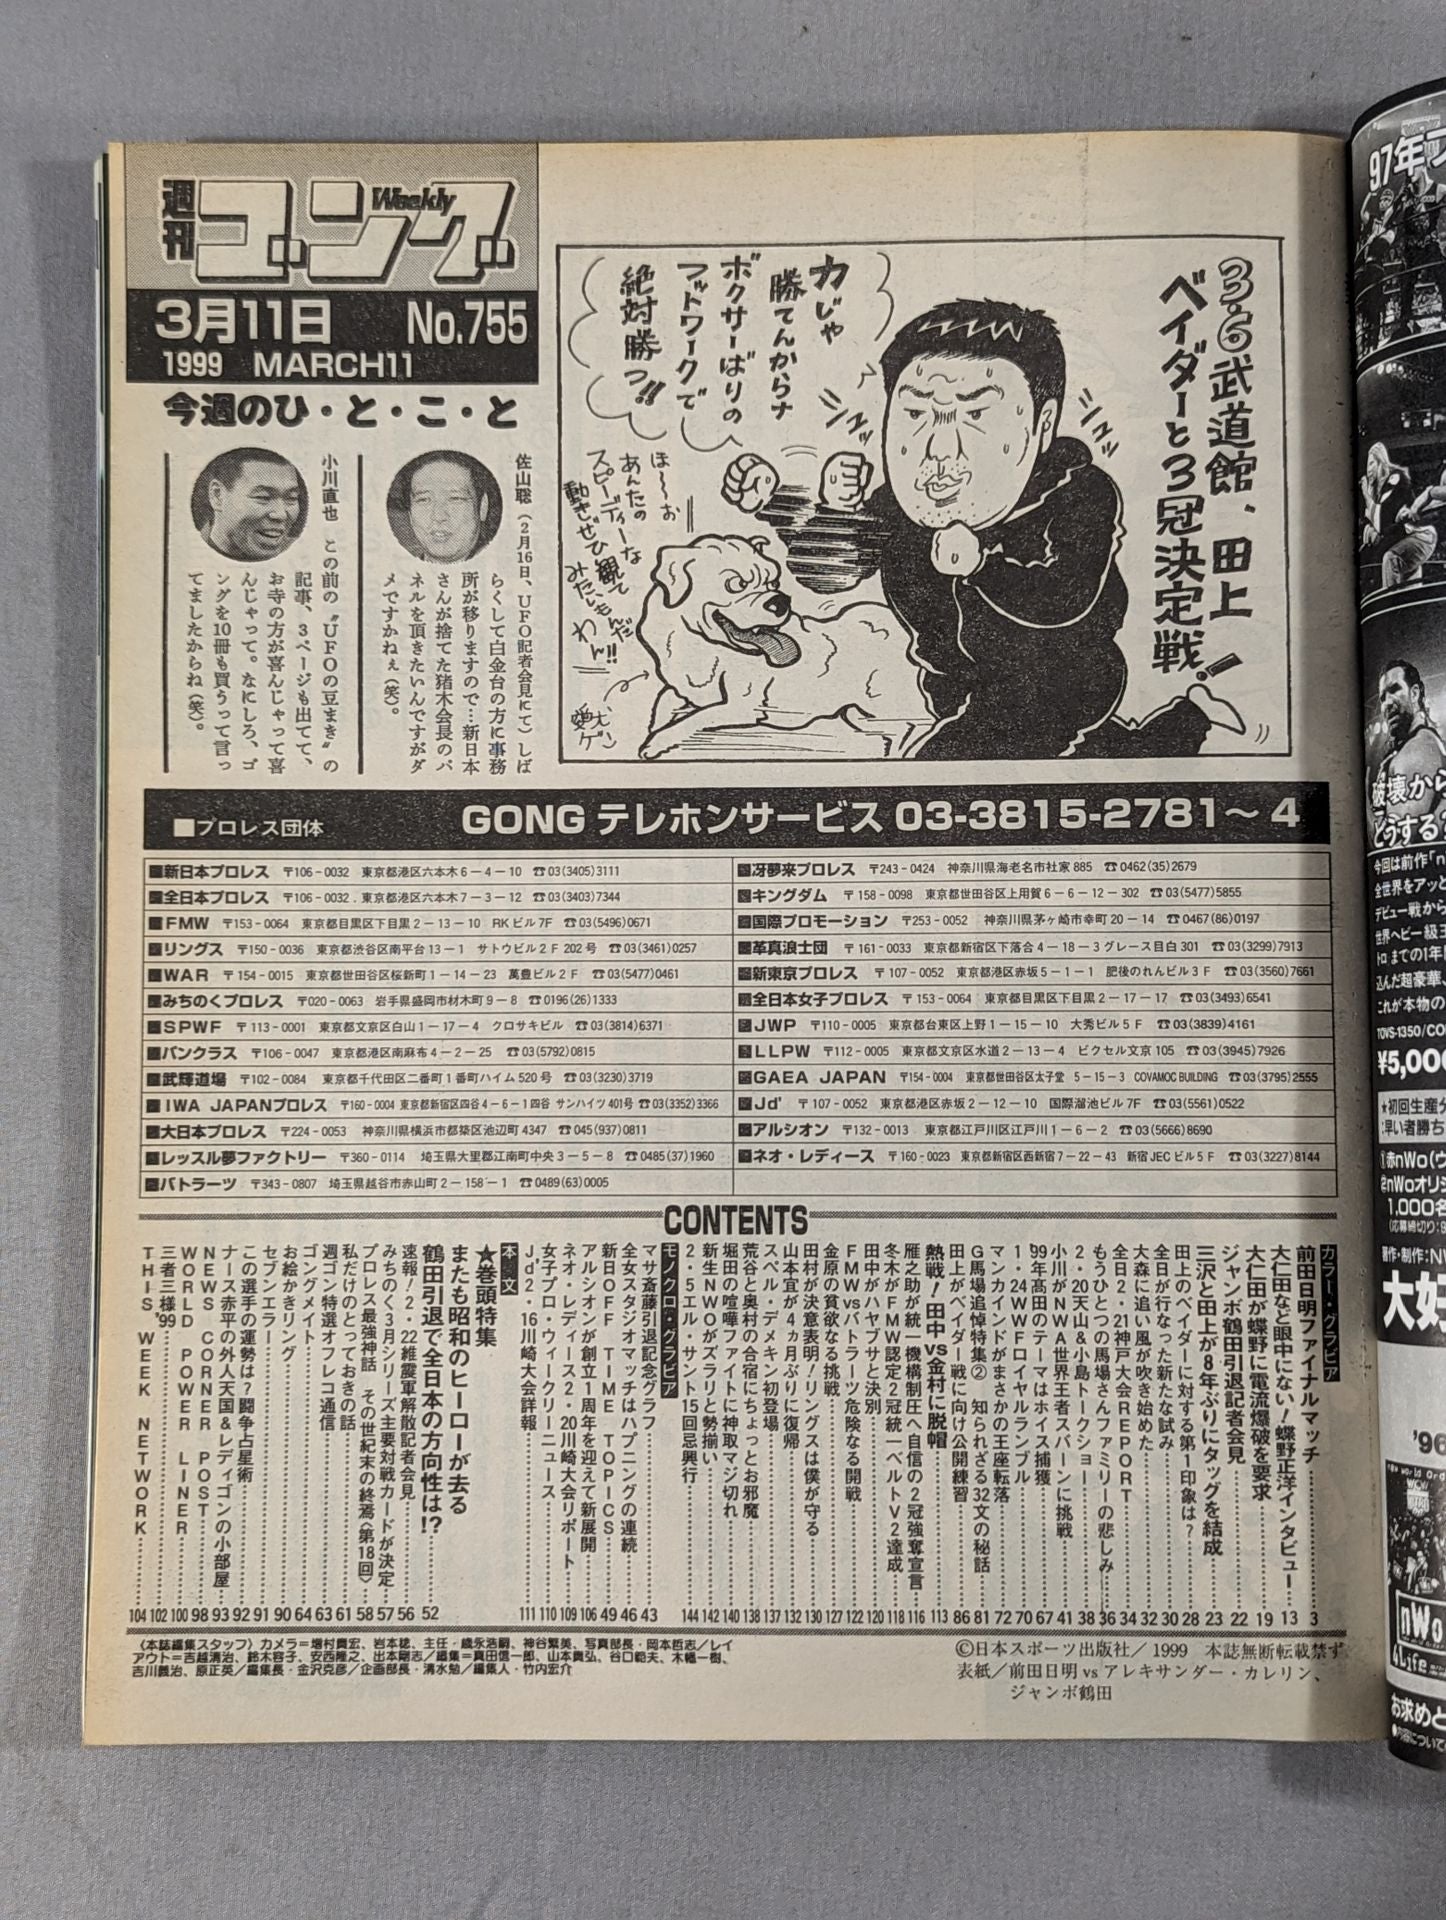 週刊
ゴング
Weekly
3月11日 No.755
1999 MARCH11
今週のひ・と・こ・と
佐山聡（2月16日、UFO記者会見にて）しば
らくして白金台の方に事務
所が移りますので…新日本
さんが捨てた猪木会長のパ
ネルを頂きたいんですがダ
メですかねぇ（笑）。
小川直也 この前の〝UFOの豆まき〟の
記事、3ページも出てて、
お寺の方が喜んじゃって喜
んじゃって。なにしろ、ゴ
ングを10冊も買うって言っ
てましたからね（笑）。
3.6武道館、田上
ベイダーと3冠決定戦!
力じゃ
勝てんからナ
ボクサーばりの
フットワークで
絶対勝つ!!
シュッ
シュッ
ほ～お
あんたの
スピーディーな
動きぜひ観て
みたいもんだ
わん!!
愛犬、
ゲン
■プロレス団体 GONG テレホンサービス 03-3815-2781～4
■新日本プロレス 〒106-0032 東京都港区六本木6-4-10 ☎03(3405)3111
■全日本プロレス 〒106-0032 東京都港区六本木7-3-12 ☎03(3403)7344
■FMW 〒153-0064 東京都目黒区下目黒2-13-10 RKビル7F ☎03(5496)0671
■リングス 〒150-0036 東京都渋谷区南平台13-1 サトウビル2F 202号 ☎03(3461)0257
■WAR 〒154-0015 東京都世田谷区桜新町1-14-23 萬豊ビル2F ☎03(5477)0461
■みちのくプロレス 〒020-0063 岩手県盛岡市材木町9-8 ☎0196(26)1333
■SPWF 〒113-0001 東京都文京区白山1-17-4 クロサキビル ☎03(3814)6371
■パンクラス 〒106-0047 東京都港区南麻布4-2-25 ☎03(5792)0815
■武輝道場 〒102-0084 東京都千代田区二番町1番町ハイム520号 ☎03(3230)3719
■IWA JAPANプロレス 〒160-0004 東京都新宿区四谷4-6-1四谷 サンハイツ401号 ☎03(3352)3366
■大日本プロレス 〒224-0053 神奈川県横浜市都築区池辺町4347 ☎045(937)0811
■レッスル夢ファクトリー 〒360-0114 埼玉県大里郡江南町中央3-5-8 ☎0485(37)1960
■バトラーツ 〒343-0807 埼玉県越谷市赤山町2-158-1 ☎0489(63)0005
■冴夢来プロレス 〒243-0424 神奈川県海老名市社家885 ☎0462(35)2679
■キングダム 〒158-0098 東京都世田谷区上用賀6-6-12-302 ☎03(5477)5855
■国際プロモーション 〒253-0052 神奈川県茅ヶ崎市幸町20-14 ☎0467(86)0197
■革真浪士団 〒161-0033 東京都新宿区下落合4-18-3グレース目白301 ☎03(3299)7913
■新東京プロレス 〒107-0052 東京都港区赤坂5-1-1 肥後のれんビル3F ☎03(3560)7661
■全日本女子プロレス 〒153-0064 東京都目黒区下目黒2-17-17 ☎03(3493)6541
■JWP 〒110-0005 東京都台東区上野1-15-10 大秀ビル5F ☎03(3839)4161
■LLPW 〒112-0005 東京都文京区水道2-13-4 ビクセル文京105 ☎03(3945)7926
■GAEA JAPAN 〒154-0004 東京都世田谷区太子堂 5-15-3 COVAMOC BUILDING ☎03(3795)2555
■Jd' 〒107-0052 東京都港区赤坂2-12-10 国際溜池ビル7F ☎03(5561)0522
■アルシオン 〒132-0013 東京都江戸川区江戸川1-6-2 ☎03(5666)8690
■ネオ・レディース 〒160-0023 東京都新宿区西新宿7-22-43 新宿JECビル5F ☎03(3227)8144
CONTENTS
カラー・グラビア
前田日明ファイナルマッチ 3
大仁田など眼中にない!蝶野正洋インタビュー 13
大仁田が蝶野に電流爆破を要求 19
ジャンボ鶴田引退記者会見 22
三沢と田上が8年ぶりにタッグを結成 23
田上のベイダーに対する第1印象は? 28
全日が行なった新たな試み 30
大森に追い風が吹き始めた 32
全日2・21神戸大会REPORT 34
もうひとつの馬場さんファミリーの悲しみ 36
2・20天山&小島トークショー 38
小川がNWA世界王者スバーンに挑戦 41
'99年髙田のテーマはホイス捕獲 67
1・24WWFロイヤルランブル 70
マンカインドがまさかの王座転落 72
G馬場追悼特集② 知られざる32文の秘話 81
田上がベイダー戦に向け公開練習 86
熱戦!田中vs金村に脱帽 113
雁之助が統一機構制圧へ自信の2冠強奪宣言 116
冬木がFMW認定2冠統一ベルトV2達成 118
田中がハヤブサと決別 120
FMWvsバトラーツ危険なる開戦 122
金原の貪欲なる挑戦 127
田村が決意表明!リングスは僕が守る 130
山本宜が4ヵ月ぶりに復帰 132
スペル・デメキン初登場 137
荒谷と奥村の合宿にちょっとお邪魔 138
堀田の喧嘩ファイトに神取マジ切れ 140
新生NWOがズラリと勢揃い 142
2・5エル・サント15回忌興行 144
モノクロ・グラビア
マサ斎藤引退記念グラフ 43
全女スタジオマッチはハプニングの連続 46
新日OFF TIME TOPICS 49
アルシオンが創立1周年を迎えて新展開 106
ネオ・レディース2・20川崎大会リポート 109
女子プロ・ウィークリーニュース 110
Jd'2・16川崎大会詳報 111
本文
★巻頭特集
またも昭和のヒーローが去る
鶴田引退で全日本の方向性は!? 52
速報!2・22維震軍解散記者会見 56
みちのく3月シリーズ主要対戦カードが決定 57
プロレス最強神話 その世紀末の終焉〈第18回〉 58
私だけのとっておきの話 61
週ゴン特選オフレコ通信 63
ゴングメイト 64
お絵かきリング 90
セブンエラー 91
この選手の運勢は?闘争占星術 92
ナース赤平の外人天国&レディゴンの小部屋 93
NEWS CORNER POST 98
WORLD POWER LINER 100
三者三様'99 102
THIS WEEK NETWORK 104
〈本誌編集スタッフ〉カメラ＝増村貴宏、岩本稔、主任・歳永浩嗣、神谷繁美、写真部長・岡本哲志／レイ
アウト＝吉越清治、鈴木容子、安西隆之、出本剛志／編集＝真田信一郎、山本貴弘、谷口範夫、木幡一樹、
吉川義治、原正英／編集長・金沢克彦／企画部長・清水勉／編集人・竹内宏介
©日本スポーツ出版社／1999 本誌無断転載禁ず
表紙／前田日明vsアレキサンダー・カレリン、
ジャンボ鶴田
97年フ
破壊から
どうする?
今回は前作「n
全世界をアッと
デビュー戦から
世界ヘビー級王
トロまでの1年
込んだ超豪華、
これが本物の
TOVS-1350/CO
¥5,000
★初回生産分
:早い者勝ち
①赤nWo(ウ
②nWoオリジ
1,000名
(応募締切り:9
著作・制作:NW
大好
'96
new world Ord
nWo
4 Life
お求めと
●内容について